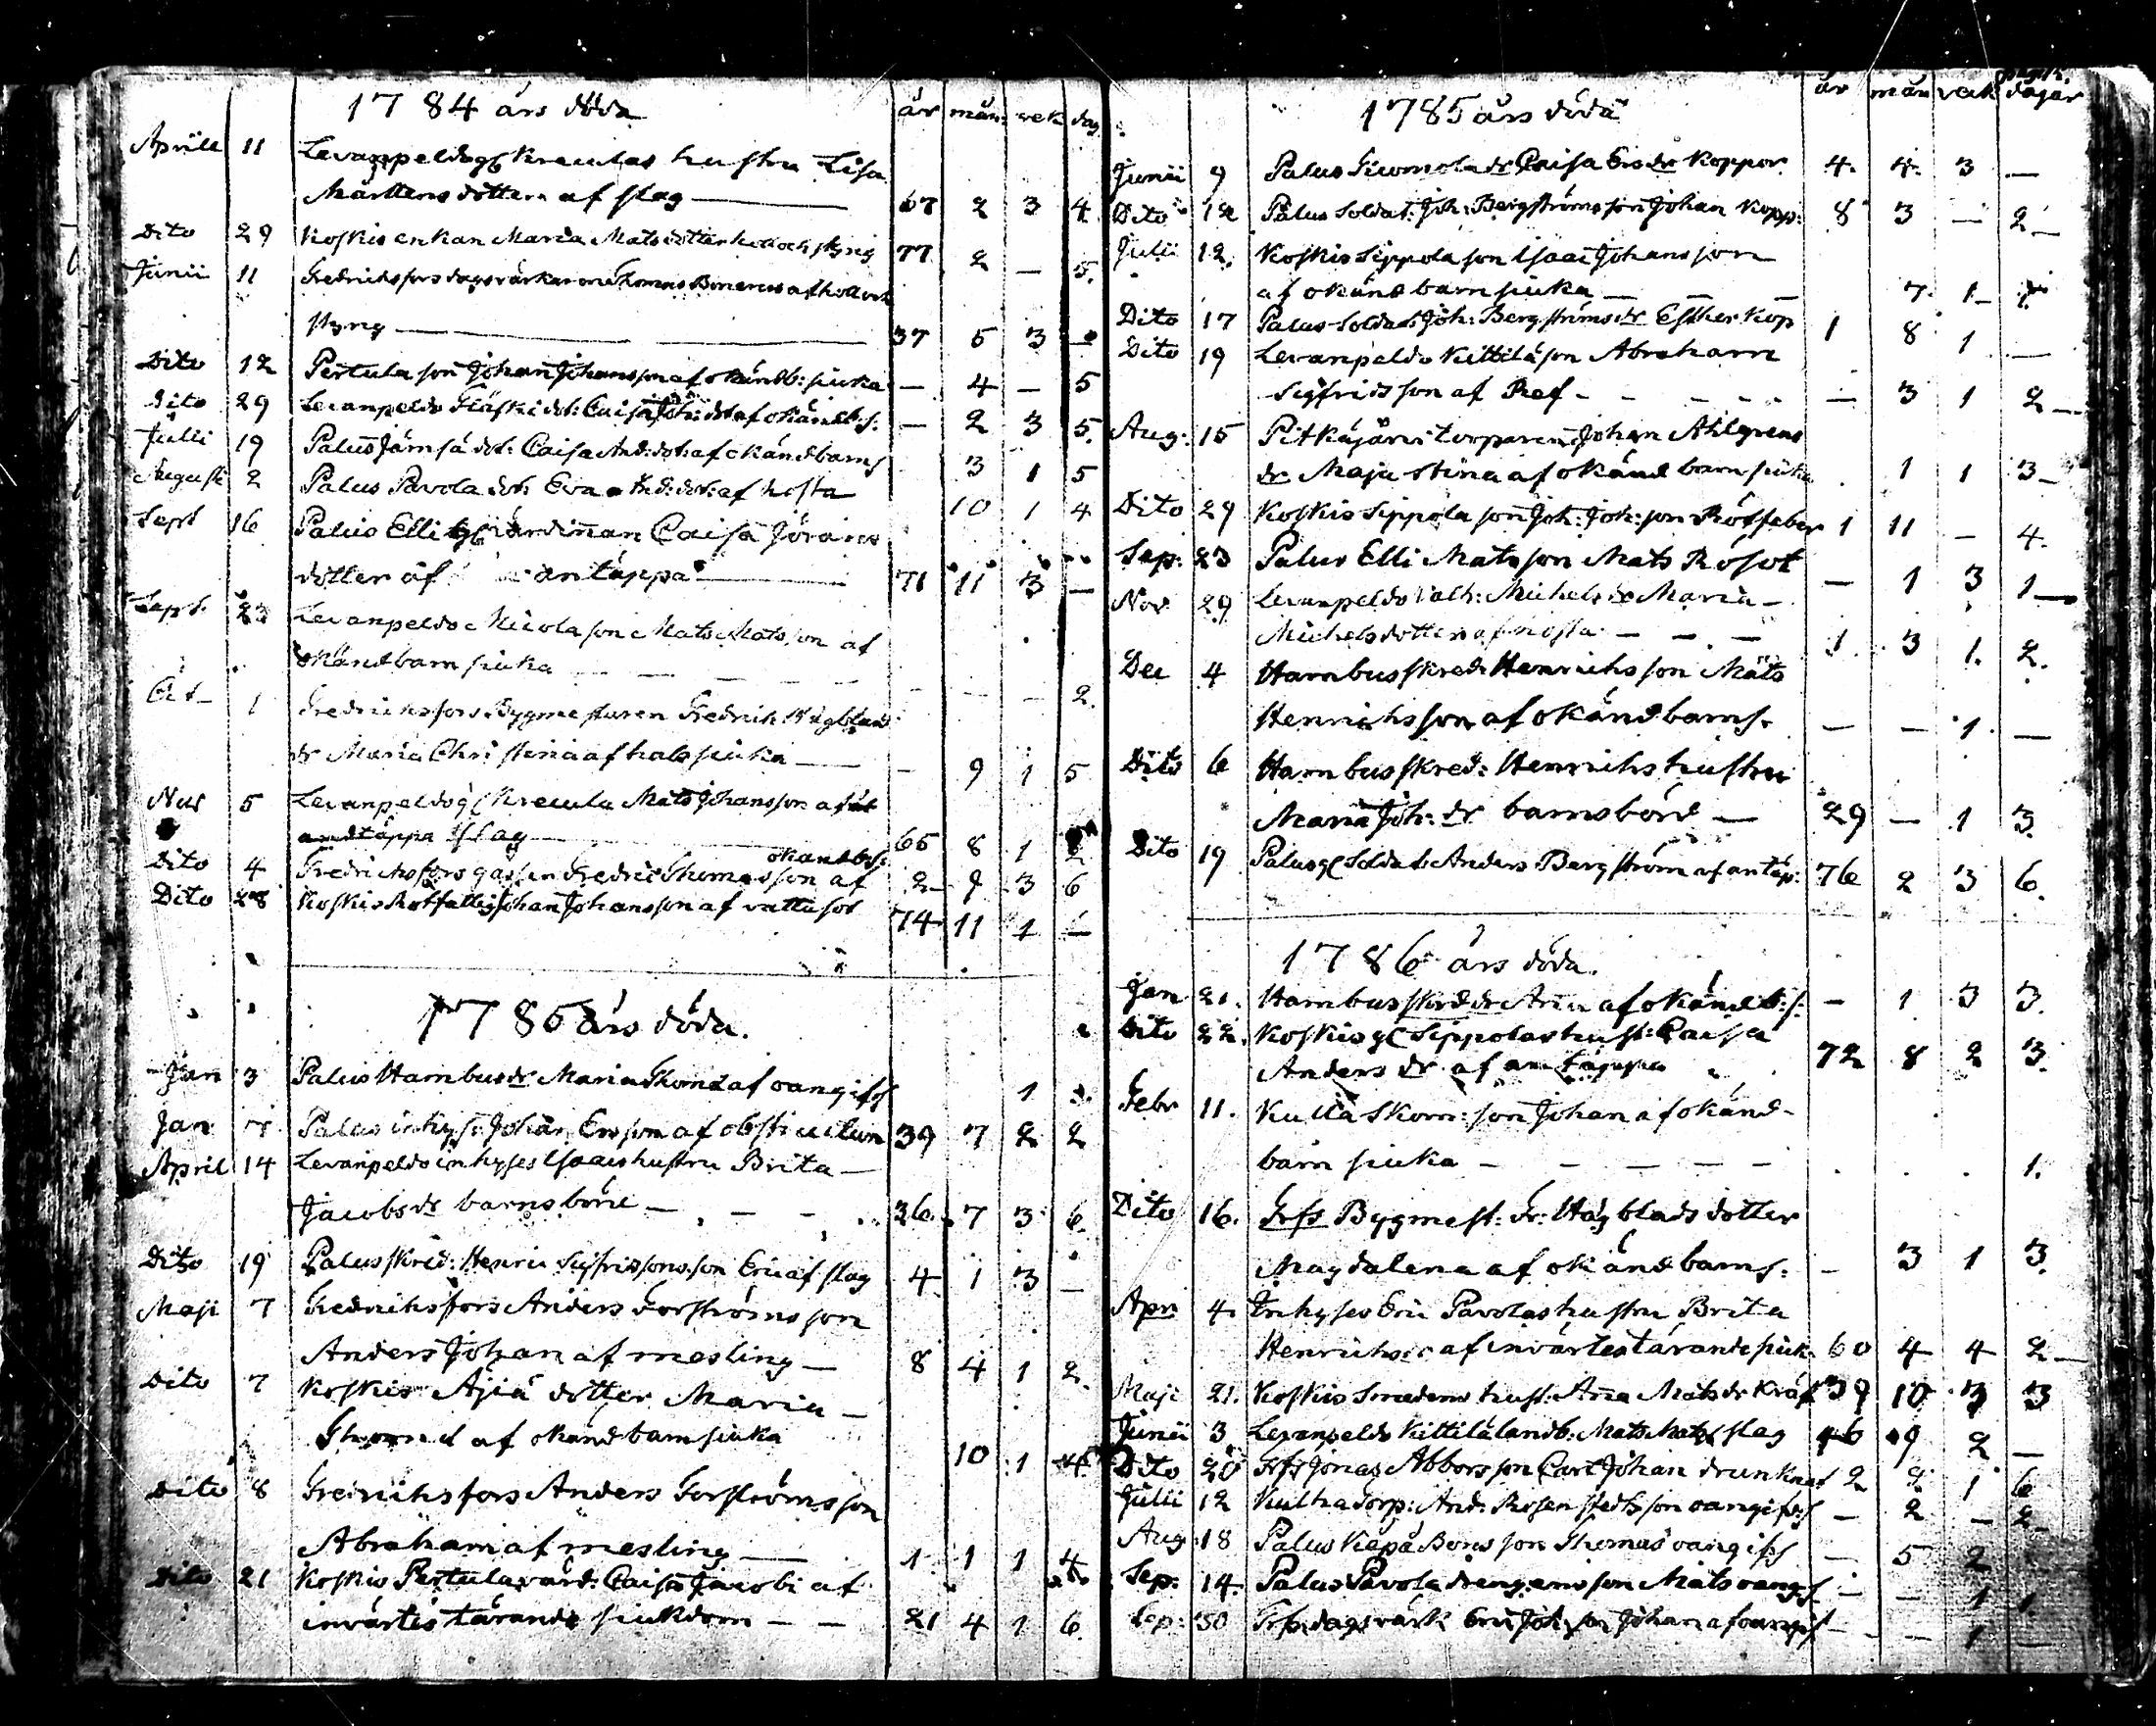 1784 års döda år mån: vek dag
Aprill 11 Levanpeldo gl Kreculas hustru Lisa
Mårttens dotter af slag 67 2 3 4
Dito 29 Koskis enkan Maria Mats dotter håll och styng 77 2 — 5.
Junii 11 Fredrichsfors dagsvärkaren Thomas af håll och
styng 37 5 3
Dito 12 Pertula son Johan Johansson af okänd b: siuka — 4 — 5
Dito 29 Levanpeldo dot: Caisa Joh: dot af okänd b s: — 2 3 5.
Julii 19 Palus Jämsä dot: Caisa And: dot: af okänd barns 3 1 5
Augusti 2 Palus Pavola dot: Eva And: dot: af hosta 10 1 4
Sept 16 Palus Elli gl värdinnan Caisa Jörans
dotter af antäppa 71 11 3 —
Sept. 23 Levanpeldo Nicola son Mats Matsson af
okänd barn siuka — — — 2.
Oct 1 Fredrichsfors Bygmesturen Fredrich Hägblads
dr Maria Christina af hals siuka — 9 1 5
Nov 5 Levanpeldo gl Krecula Mats Johansson af
andtäppa slag 65 8 1 2
okänd b s:
Dito 4 Fredrichsfors gassen Fredric Thomasson af 2 9 3 6
Dito 28 Koskis Rotfattig Johan Johansson af vattusot 74 11 1 —
1785 års döda.
Jan 3 Palus Hambus dr Maria Thomd af oangifs 1
Jan 7 Palus inhys: Johan Ersson af obstruction 39 7 2 2
April 14 Levanpeldo inhyses Isaacs hustru Brita —
Jacobs dr barnsbörd — 36. 7 3 6.
Dito 19 Palus skred: Henric Sigfridssons son Eric af slag 4 1 3 —
Maji 7 Fredrichsfors Anders Forströms son
Anders Johan af mesling — 8 4 1 2.
Dito 7 Koskis Äjiä dotter Maria —
Thomd af okänd barn siuka 10 1 4
Dito 8 Fredrichsfors Anders Forströms son
Abraham af mesling — 1 1 1 4
Dito 21 Koskis Pertula värd: Caisa Jacobi af
invärtes tärande siukdom — — 21 4 1 6
1785 års döda år mån vek dagar
Junii 9 Palus dr Caisa Ers dr Koppor 4. 4. 3 —
Dito 12 Palus Soldat: Joh: Bergströms son Johan Kopp: 8 3 — 2
Julii 12. Koskis Sippola son Isaac Johansson
af okänd barn siuka — — — 7. 1
Dito 17 Palus Soldat: Joh: Bergströms dr Esther Kop 1 8 1 —
Dito 19 Levanpeldo Kittilä son Abraham
Sigfridsson af Ref — 3 1 2
Aug: 15 Pitkäjärvi torparen Johan Ahlgrens
dr Maja Stina af okänd barn siuka 1 1 3
Dito 29 Koskis Sippola son Joh: Joh: son Rötfeber 1 11 — 4.
Sep: 23 Palus Elli Matsson Mats Rosot — 1 3 1
Nov 29 Levanpeldo Michels dr Maria —
Michels dotter af hosta — — — 1. 3 1. 2.
Dec 4 Hambus skred: Henrichs son Mats
Henrichsson af okänd barns. — — 1. —
Dito 6 Hambus skred: Henrichs hustru
Maria Joh: dr barnsbörd — 29 — 1 3
Dito 19 Palus gl Soldat: Anders Bergström af antäp: 76 2 3 6.
1786 års döda.
Jan 21. Hambus skred dr Anna af okänd b: s: — 1 3 3.
Dito 22. Koskis gl Sippolas hust: Caisa
Anders dr af antäppa 72 8 2 3.
Febr 11. Kulla Skom: son Johan af okänd-
barn siuka — — — — — 1.
Dito 16. Frfs Bygmest: Fr: Hägblads dotter
Magdalena af okänd barns: — 3 1 3.
Apri 4. Inhyses Eric Pavolas hustru Brita
Henrichs dr af invärtes tärande siuk. 60 4 4 2
Maji 21. Koskis Smedens hust: Anna Mats dr Kräf 39 10 3 3
Junii 3 Levanpeldo Kittilä landb: Mats Mats slag 46 9 2 —
Dito 20 Frfs Jonas Abbors son Carl Johan drunknat 2 2 1 6
Julii 12 Kulha Torp: And: Rosenstedts son oangifs — 2 — 2
Aug 18 Palus son Thomas oangifs — 5 2
Sep: 14. Palus Pavola drengens son Mats oangs — — 1 1.
Sep: 30 Frfs dagsvärk Eric Joh: son Johan af oangifs — — 1 —